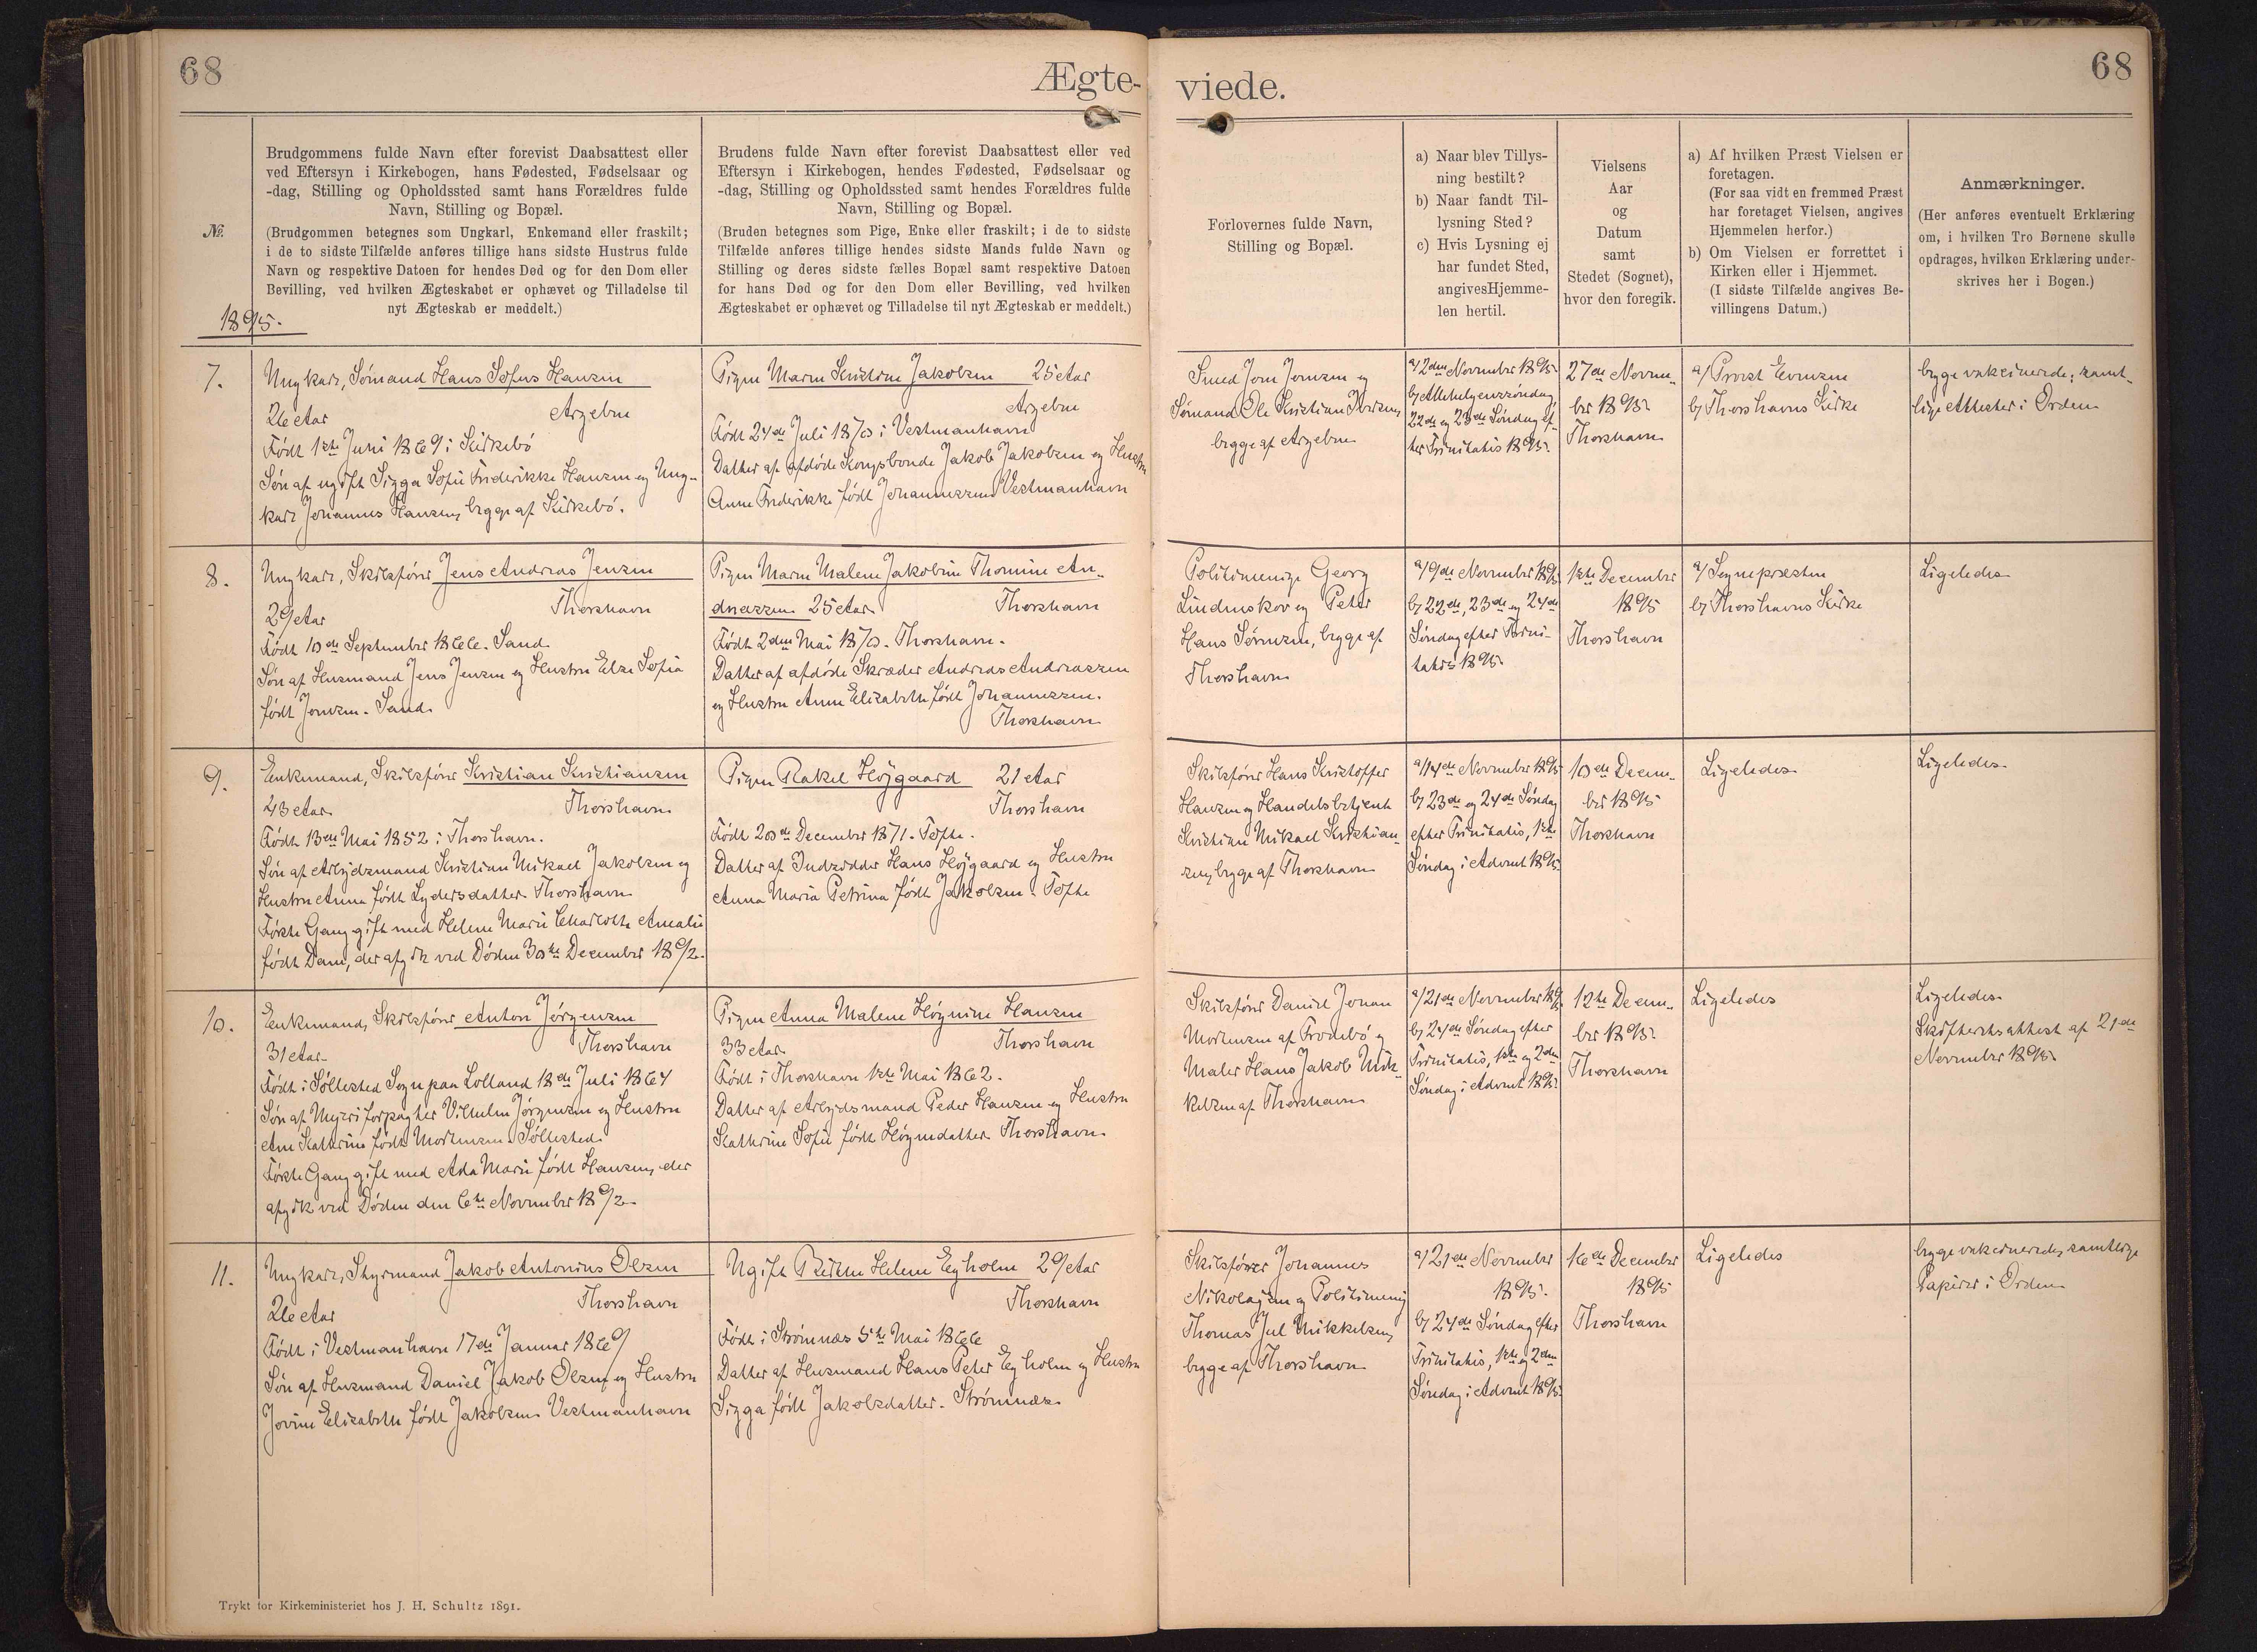 68
Ægte-
viede.
68
№.
Brudgommens fulde Navn efter forevist Daabsattest eller
ved Eftersyn i Kirkebogen, hans Fødested, Fødselsaar og
-dag, Stilling og Opholdssted samt hans Forældres fulde
Navn, Stilling og Bopæl.
(Brudgommen betegnes som Ungkarl, Enkemand eller fraskilt;
i de to sidste Tilfælde anføres tillige hans sidste Hustrus fulde
Navn og respektive Datoen for hendes Død og for den Dom eller
Bevilling, ved hvilken Ægteskabet er ophævet og Tilladelse til
nyt Ægteskab er meddelt.)
Brudens fulde Navn efter forevist Daabsattest eller ved
Eftersyn i Kirkebogen, hendes Fødested, Fødselsaar og
-dag, Stilling og Opholdssted samt hendes Forældres fulde
Navn, Stilling og Bopæl.
(Bruden betegnes som Pige, Enke eller fraskilt; i de to sidste
Tilfælde anføres tillige hendes sidste Mands fulde Navn og
Stilling og deres sidste fælles Bopæl samt respektive Datoen
for hans Død og for den Dom eller Bevilling, ved hvilken
Ægteskabet er ophævet og Tilladelse til nyt Ægteskab er meddelt.)
Forlovernes fulde Navn,
Stilling og Bopæl.
a) Naar blev Tillys-
ning bestilt?
b) Naar fandt Til-
lysning Sted?
c) Hvis Lysning ej
har fundet Sted,
angivesHjemme-
len hertil.
Vielsens
Aar
og
Datum
samt
Stedet (Sognet),
hvor den foregik.
a) Af hvilken Præst Vielsen er
foretagen.
(For saa vidt en fremmed Præst
har foretaget Vielsen, angives
Hjemmelen herfor.)
b) Om Vielsen er forrettet i
Kirken eller i Hjemmet.
(I sidste Tilfælde angives Be-
villingens Datum.)
Anmærkninger.
(Her anføres eventuelt Erklæring
om, i hvilken Tro Børnene skulle
opdrages, hvilken Erklæring under-
skrives her i Bogen.)
1895.
7.
Ungkarl, Sømand Hans Sofus Hansen
26 Aar Argebne
Født 1ste Juni 1869 i Kirkebö
Søn af ugift Sigga Sofie Frederikke Hansen og Ung-
karl Johannes Hansen, begge af Kirkebö.
Pigen Maren Kristine Jakobsen 25 Aar
Argebne
Født 24de Juli 1870 i Vestmanhavn
Datter af afdøde Kongsbonde Jakob Jakobsen og Hustru
Anne Frederikke født Johannessen Vestmanhavn
Smed Jon Joensen og
Sømand Ole Kristian Iversen,
begge af Argebne
a) 2den November 1895.
b) Allehelgenssøndag,
22de og 23de Søndag ef-
ter Trinitatis 1895.
27de Novem-
ber 1895.
Thorshavn
a) Provst Evensen
b) Thorshavns Kirke
begge vakcinerede; samt-
lige Attester i Orden
8.
Ungkarl, Skibsfører Jens Andreas Jensen
29 Aar Thorshavn
Født 10de September 1866. Sand
Søn af Husmand Jens Jensen og Hustru Else Sofia
født Joensen. Sand.
Pigen Maren Malene Jakobine Thomine An-
dreassen 25 Aar Thorshavn
Født 2den Mai 1870. Thorshavn.
Datter af afdøde Skræder Andreas Andreassen
og Hustru Anne Elisabeth født Johannessen.
Thorshavn
Politimenige Georg
Lindenskov og Peter
Hans Sørensen, begge af
Thorshavn
a) 9de November 1895
b) 22de, 23de og 24de
Søndag efter Trini-
tatis 1895.
1ste December
1895
Thorshavn
a) Sognepræsten
b) Thorshavns Kirke
Ligeledes
9.
Enkemand, Skibsfører Kristian Kristiansen
43 Aar Thorshavn
Født 13de Mai 1852 i Thorshavn.
Søn af Arbejdsmand Kristian Mikael Jakobsen og
Hustru Anna født Lydersdatter. Thorshavn
Første Gang gift med Helene Marie Charlotte Amalie
født Dam, der afgik ved Døden 30te December 1892.
Pigen Rakel Höjgaard 21 Aar
Thorshavn
Født 20de December 1871. Tofte.
Datter af Indsidder Hans Höjgaard og Hustru
Anna Maria Petrina født Jakobsen. Tofte
Skibsfører Hans Kristoffer
Hansen og Handelsbetjent
Kristian Mikael Kristian-
sen, begge af Thorshavn
a) 14de November 1895
b) 23de og 24de Søndag
efter Trinitatis, 1ste
Søndag i Advent 1895.
10de Decem-
ber 1895
Thorshavn
Ligeledes
Ligeledes
10.
Enkemand, Skibsfører Anton Jörgensen
31 Aar Thorshavn
Født i Söllested Sogn paa Lolland 18de Juli 1864
Søn af Mejeriforpagter Vilhelm Jörgensen og Hustru
Ane Kathrine født Mortensen. Söllested
Første Gang gift med Ada Marie født Hansen, der
afgik ved Døden den 6te November 1892.
Pigen Anna Malene Högnine Hansen
33 Aar Thorshavn
Født i Thorshavn 1ste Mai 1862.
Datter af Arbejdsmand Peder Hansen og Hustru
Kathrine Sofie født Högnedatter. Thorshavn.
Skibsfører Daniel Jonan
Mortensen af Frodebö og
Maler Hans Jakob Mik-
kelsen af Thorshavn
a) 21de November 1895
b) 24de Søndag efter
Trinitatis, 1ste og 2den
Søndag i Advent 1895.
12te Decem-
ber 1895.
Thorshavn
Ligeledes
Ligeledes
Skifteretsattest af 21de
November 1895.
11.
Ungkarl, Styrmand Jakob Antonius Olsen
26 Aar Thorshavn
Født i Vestmanhavn 17de Januar 1869
Søn af Husmand Daniel Jakob Olsen og Hustru
Jovine Elisabeth født Jakobsen. Vestmanhavn
Ugift Helene Eyholm 29 Aar
Thorshavn
Født i Strømnæs 5te Mai 1866
Datter af Husmand Hans Peter Eyholm og Hustru
Sigga født Jakobsdatter. Strømnæs.
Skibsfører Johannes
Nikolajsen og Politimenig
Thomas Jul Mikkelsen,
begge af Thorshavn
a) 21de November
1895.
b) 24de Søndag efter
Trinitatis, 1ste og 2den
Søndag i Advent 1895.
16de December
1895
Thorshavn
Ligeledes
begge vakcinerede, samtlige
Papirer i Orden
Trykt for Kirkeministeriet hos J. H. Schultz 1891.